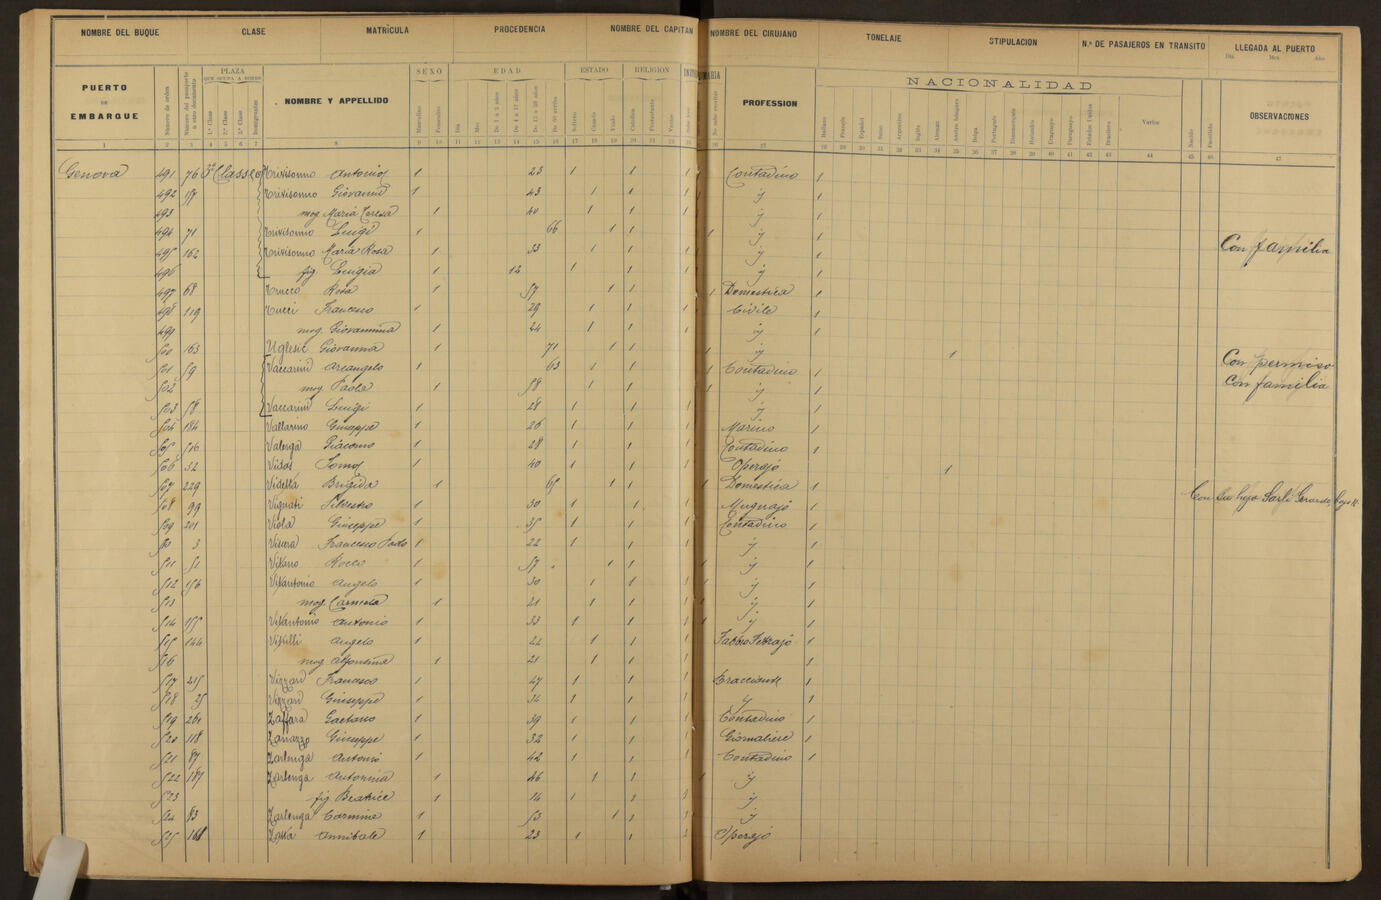 NOMBRE DEL BUQUE CLASE MATRÍCULA PROCEDENCIA NOMBRE DEL CAPITAN NOMBRE DEL CIRUJANO TONELAJE STIPULACION N.º DE PASAJEROS EN TRANSITO LLEGADA AL PUERTO
Dia Mes Año
PUERTO DE EMBARQUE Número de orden PLAZA QUE OCUPA A BORDO 1.ª Clase 2.ª Clase 3.ª Clase Inmigrantes NOMBRE Y APPELLIDO SEXO Masculino Femenino EDAD Dia Mes ESTADO Soltero Casado Viudo RELIGION Católica Protestante Varias PROFESSION NACIONALIDAD Italiano Francés Español Suizo Argentino Inglés Aleman Belga Portugués Uruguayo Paraguayo Estados Unidos Brasilero Varios OBSERVACIONES
1 2 3 4 5 6 7 8 9 10 11 12 13 14 15 16 17 18 19 20 21 22 26 27 28 29 30 31 32 33 34 35 36 37 38 39 40 41 42 43 44 45 46 47
Genova 491 76 3ª Classe Trivisonno Antonio 1 23 1 1 1 Contadino 1
492 57 Trivisonno Giovanni 1 43 1 1 1 ij 1
493 mog Maria Teresa 1 40 1 1 1 ij 1
494 71 Trivisonno Luigi 1 66 1 1 1 ij 1
495 162 Trivisonno Maria Rosa 1 33 1 1 1 ij 1 Con familia
496 fig Luigia 1 12 1 1 1 ij 1
497 68 Trucco Rosa 1 57 1 1 1 Domestica 1
498 119 Tucci Francesco 1 29 1 1 1 Civile 1
499 mog Giovannina 1 24 1 1 1 ij 1
500 163 Uglesic Giovanna 1 71 1 1 1 ij 1
501 59 Vaccarini Arcangelo 1 63 1 1 1 Contadino 1 Con permiso
502 mog Paola 1 58 1 1 1 ij 1 Con familia
503 58 Vaccarini Luigi 1 28 1 1 1 ij 1
504 184 Vallarino Giuseppe 1 26 1 1 1 Marino 1
505 516 Valenga Giacomo 1 28 1 1 1 Contadino 1
506 32 Vidas 1 40 1 1 1 Operajo 1
507 229 Brigida 1 65 1 1 1 Domestica 1
508 99 Vignati Silvestro 1 30 1 1 1 Mugnajo 1 Con su hijo Sarli Gerardo
509 201 Viola Giuseppe 1 35 1 1 1 Contadino 1
510 3 Francesco Paolo 1 22 1 1 1 ij 1
511 51 Rocco 1 57 1 1 1 ij 1
512 156 Vitantonio Angelo 1 30 1 1 1 ij 1
513 mog Carmela 1 21 1 1 1 ij 1
514 155 Vitantonio Antonio 1 33 1 1 1 ij 1
515 144 Vitulli Angelo 1 22 1 1 1 1
516 mog Alfonsina 1 21 1 1 1 1
517 215 Vizzari Francesco 1 47 1 1 1 Bracciante 1
518 25 Vizzari Giuseppe 1 34 1 1 1 ij 1
519 261 Zaffara Gaetano 1 39 1 1 1 Contadino 1
520 118 Zanazzo Giuseppe 1 32 1 1 1 Giornaliere 1
521 87 Zarlenga Antonio 1 42 1 1 1 Contadino 1
522 187 Zarlenga Antonina 1 46 1 1 1 ij
523 fig Beatrice 1 14 1 1 1 ij
524 83 Zarlenga Carmine 1 53 1 1 1 ij
525 168 Annibale 1 23 1 1 1 Operajo